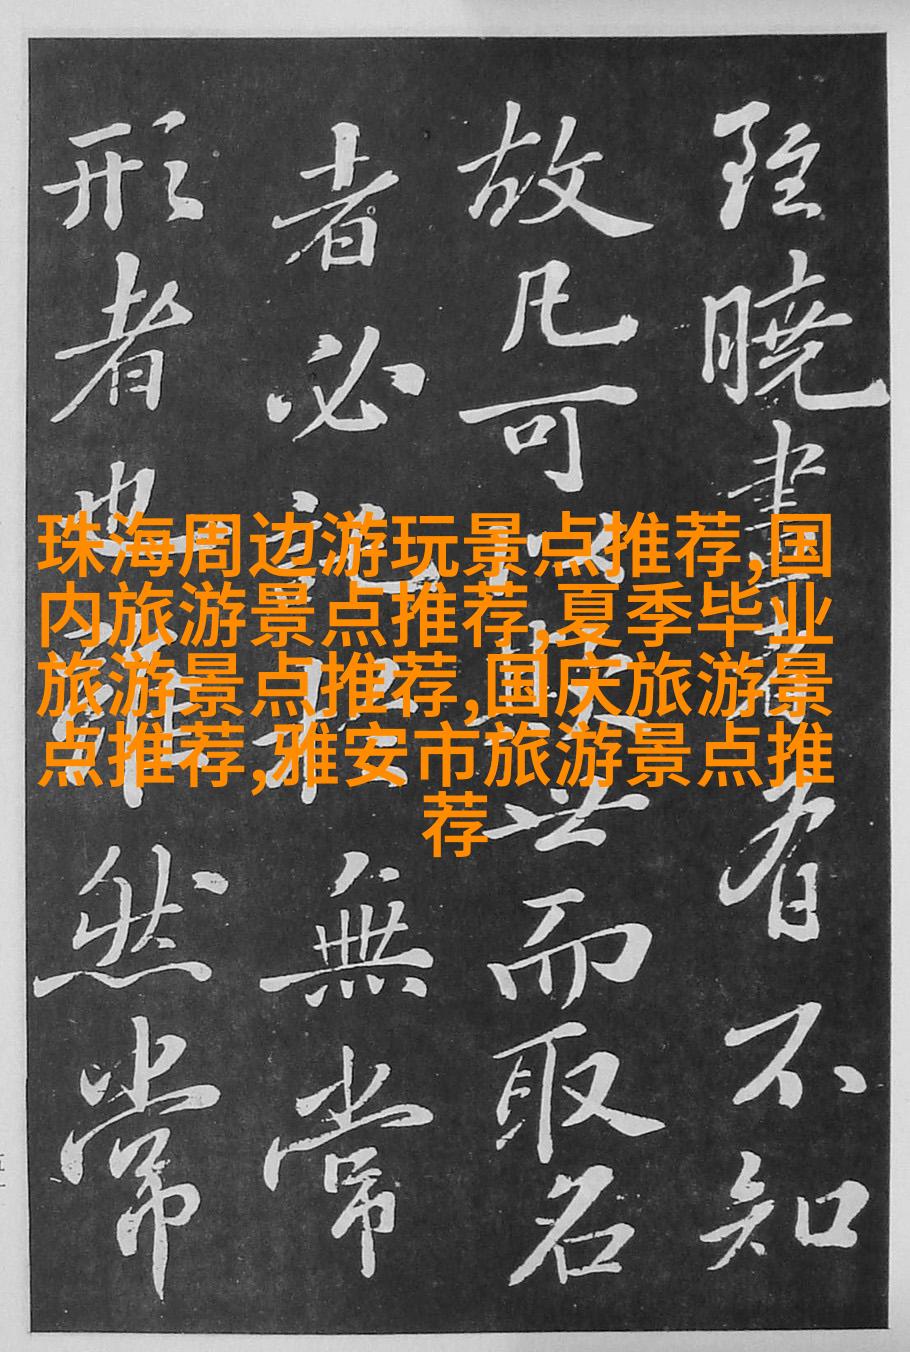 雖曉畫者有不知
故凡可以欺世而取名
者必託於無常
形者也雖然常
珠海周边游玩景点推荐,国
内旅游景点推荐,夏季毕业
旅游景点推荐,国庆旅游景
点推荐,雅安市旅游景点推
荐